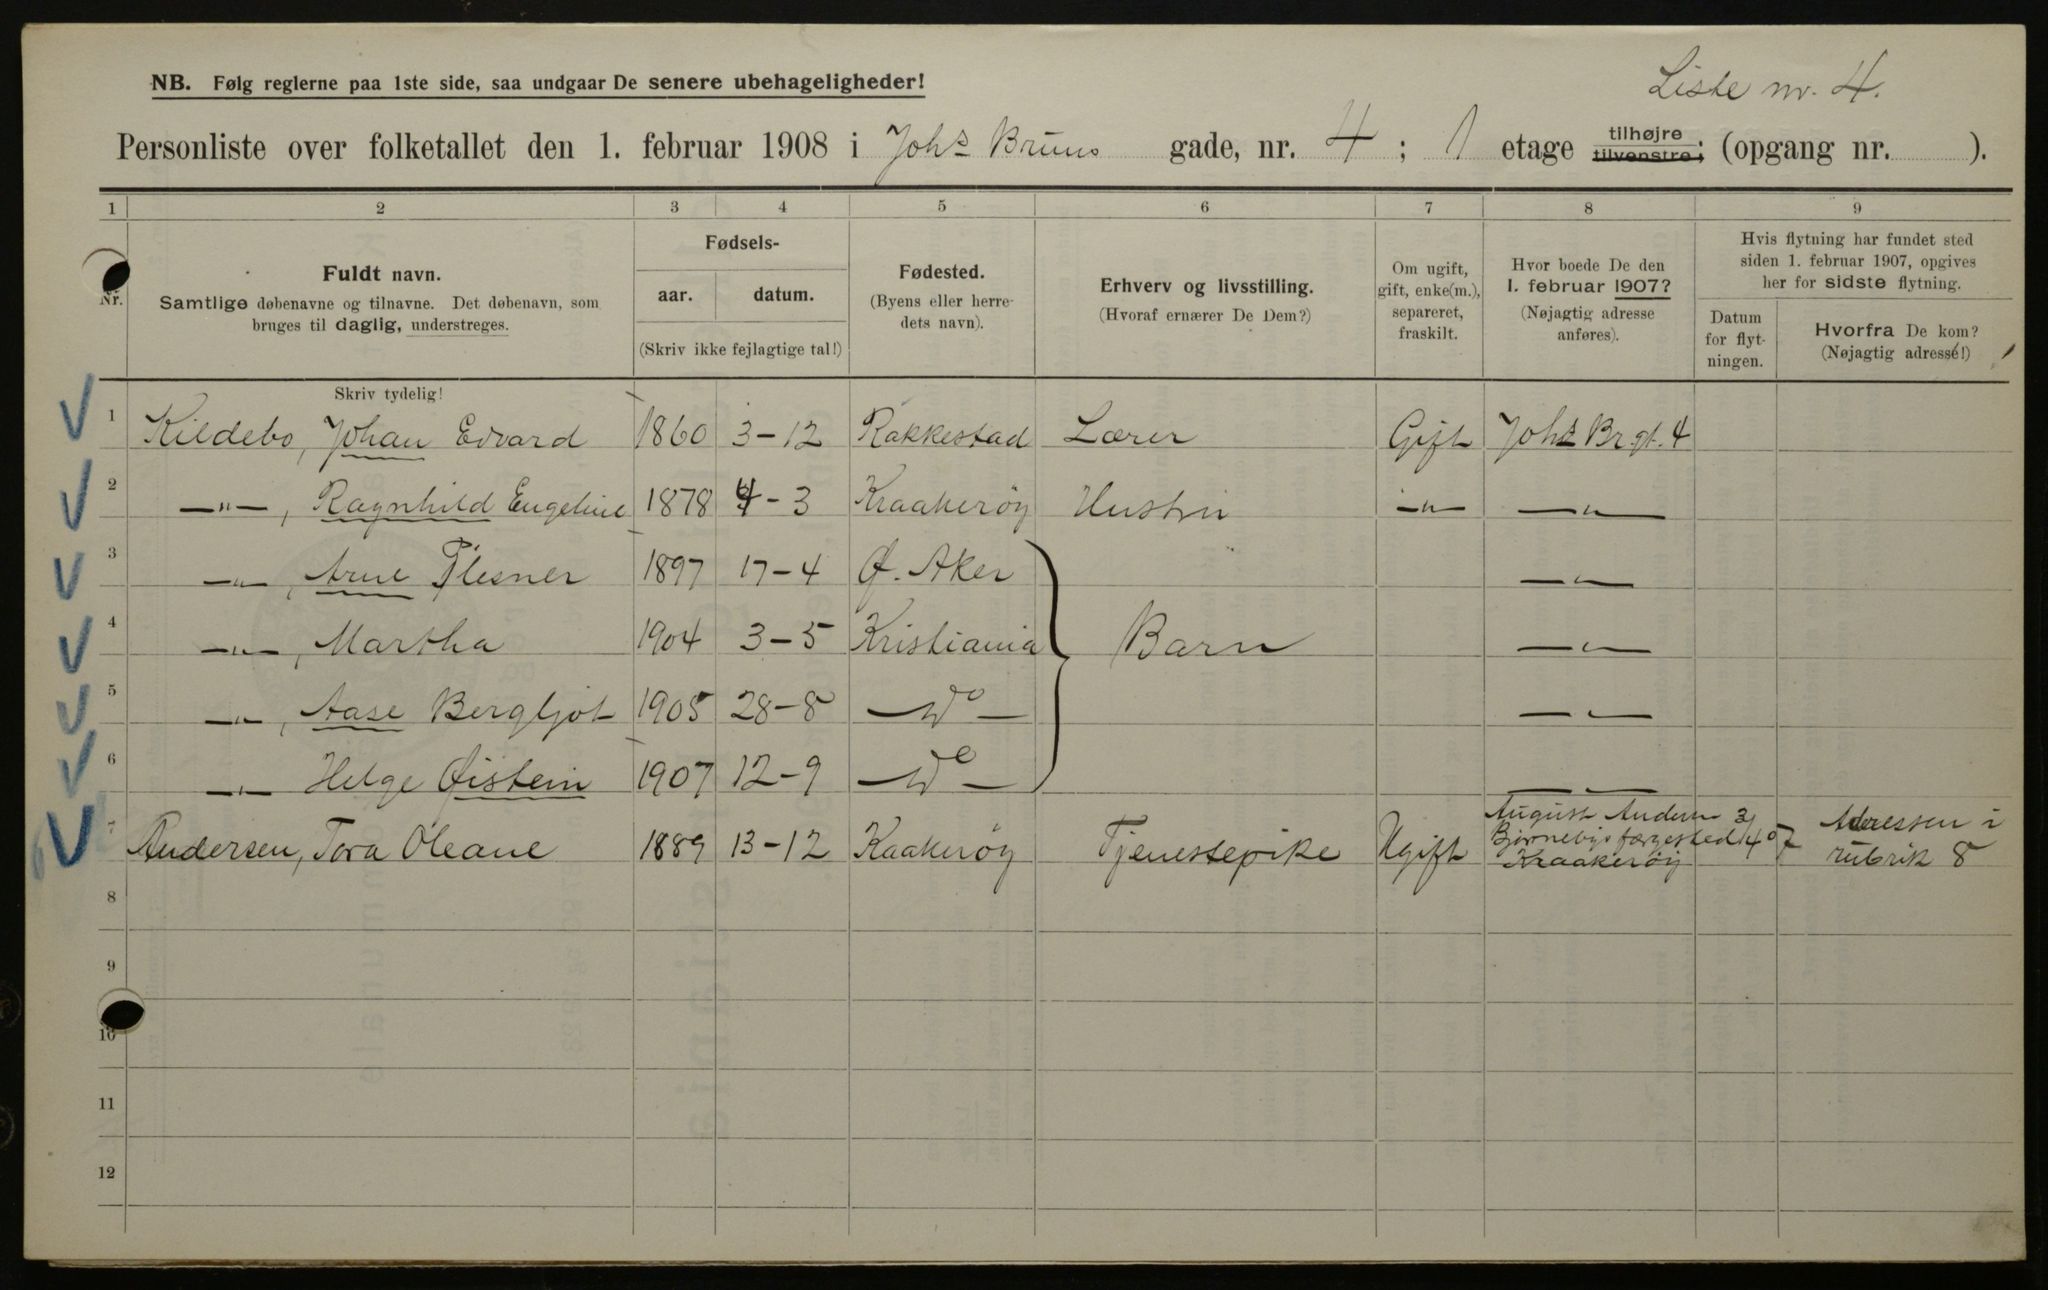 Liste nr. 4.
NB. Følg reglerne paa 1ste side, saa undgaar De senere ubehageligheder!
Personliste over folketallet den 1. februar 1908 i Johs Bruns gade, nr. 4 ; 1 etage tilhøjre tilvenstre; (opgang nr. ).
1 2 3 4 5 6 7 8 9
Nr.
Fuldt navn.
Samtlige døbenavne og tilnavne. Det døbenavn, som
bruges til daglig, understreges.
Fødsels-
aar. datum.
(Skriv ikke fejlagtige tal!)
Fødested.
(Byens eller herre-
dets navn).
Erhverv og livsstilling.
(Hvoraf ernærer De Dem?)
Om ugift,
gift, enke(m.),
separeret,
fraskilt.
Hvor boede De den
1. februar 1907?
(Nøjagtig adresse
anføres).
Hvis flytning har fundet sted
siden 1. februar 1907, opgives
her for sidste flytning.
Datum
for flyt-
ningen.
Hvorfra De kom?
(Nøjagtig adresse!)
Skriv tydelig!
1 Kildebo, Johan Edvard 1860 3-12 Rakkestad Lærer Gift Johs Br.gt. 4
2 —"—, Ragnhild Engeline 1878 4-3 Kraakerøy Hustru —"— —"—
3 —"—, Arne Plesner 1897 17-4 Ø. Aker —"—
4 —"—, Martha 1904 3-5 Kristiania Barn —"—
5 —"—, Aase Bergljot 1905 28-8 —do— —"—
6 —"— Helge Øistein 1907 12-9 —do— —"—
7 Andersen, Tora Oleane 1889 13-12 Kaakerøy Tjenestepike Ugift August Andersen Bjørnebys færgested Kraakerøy 3/4 07 Adressen i rubrik 8
8
9
10
11
12